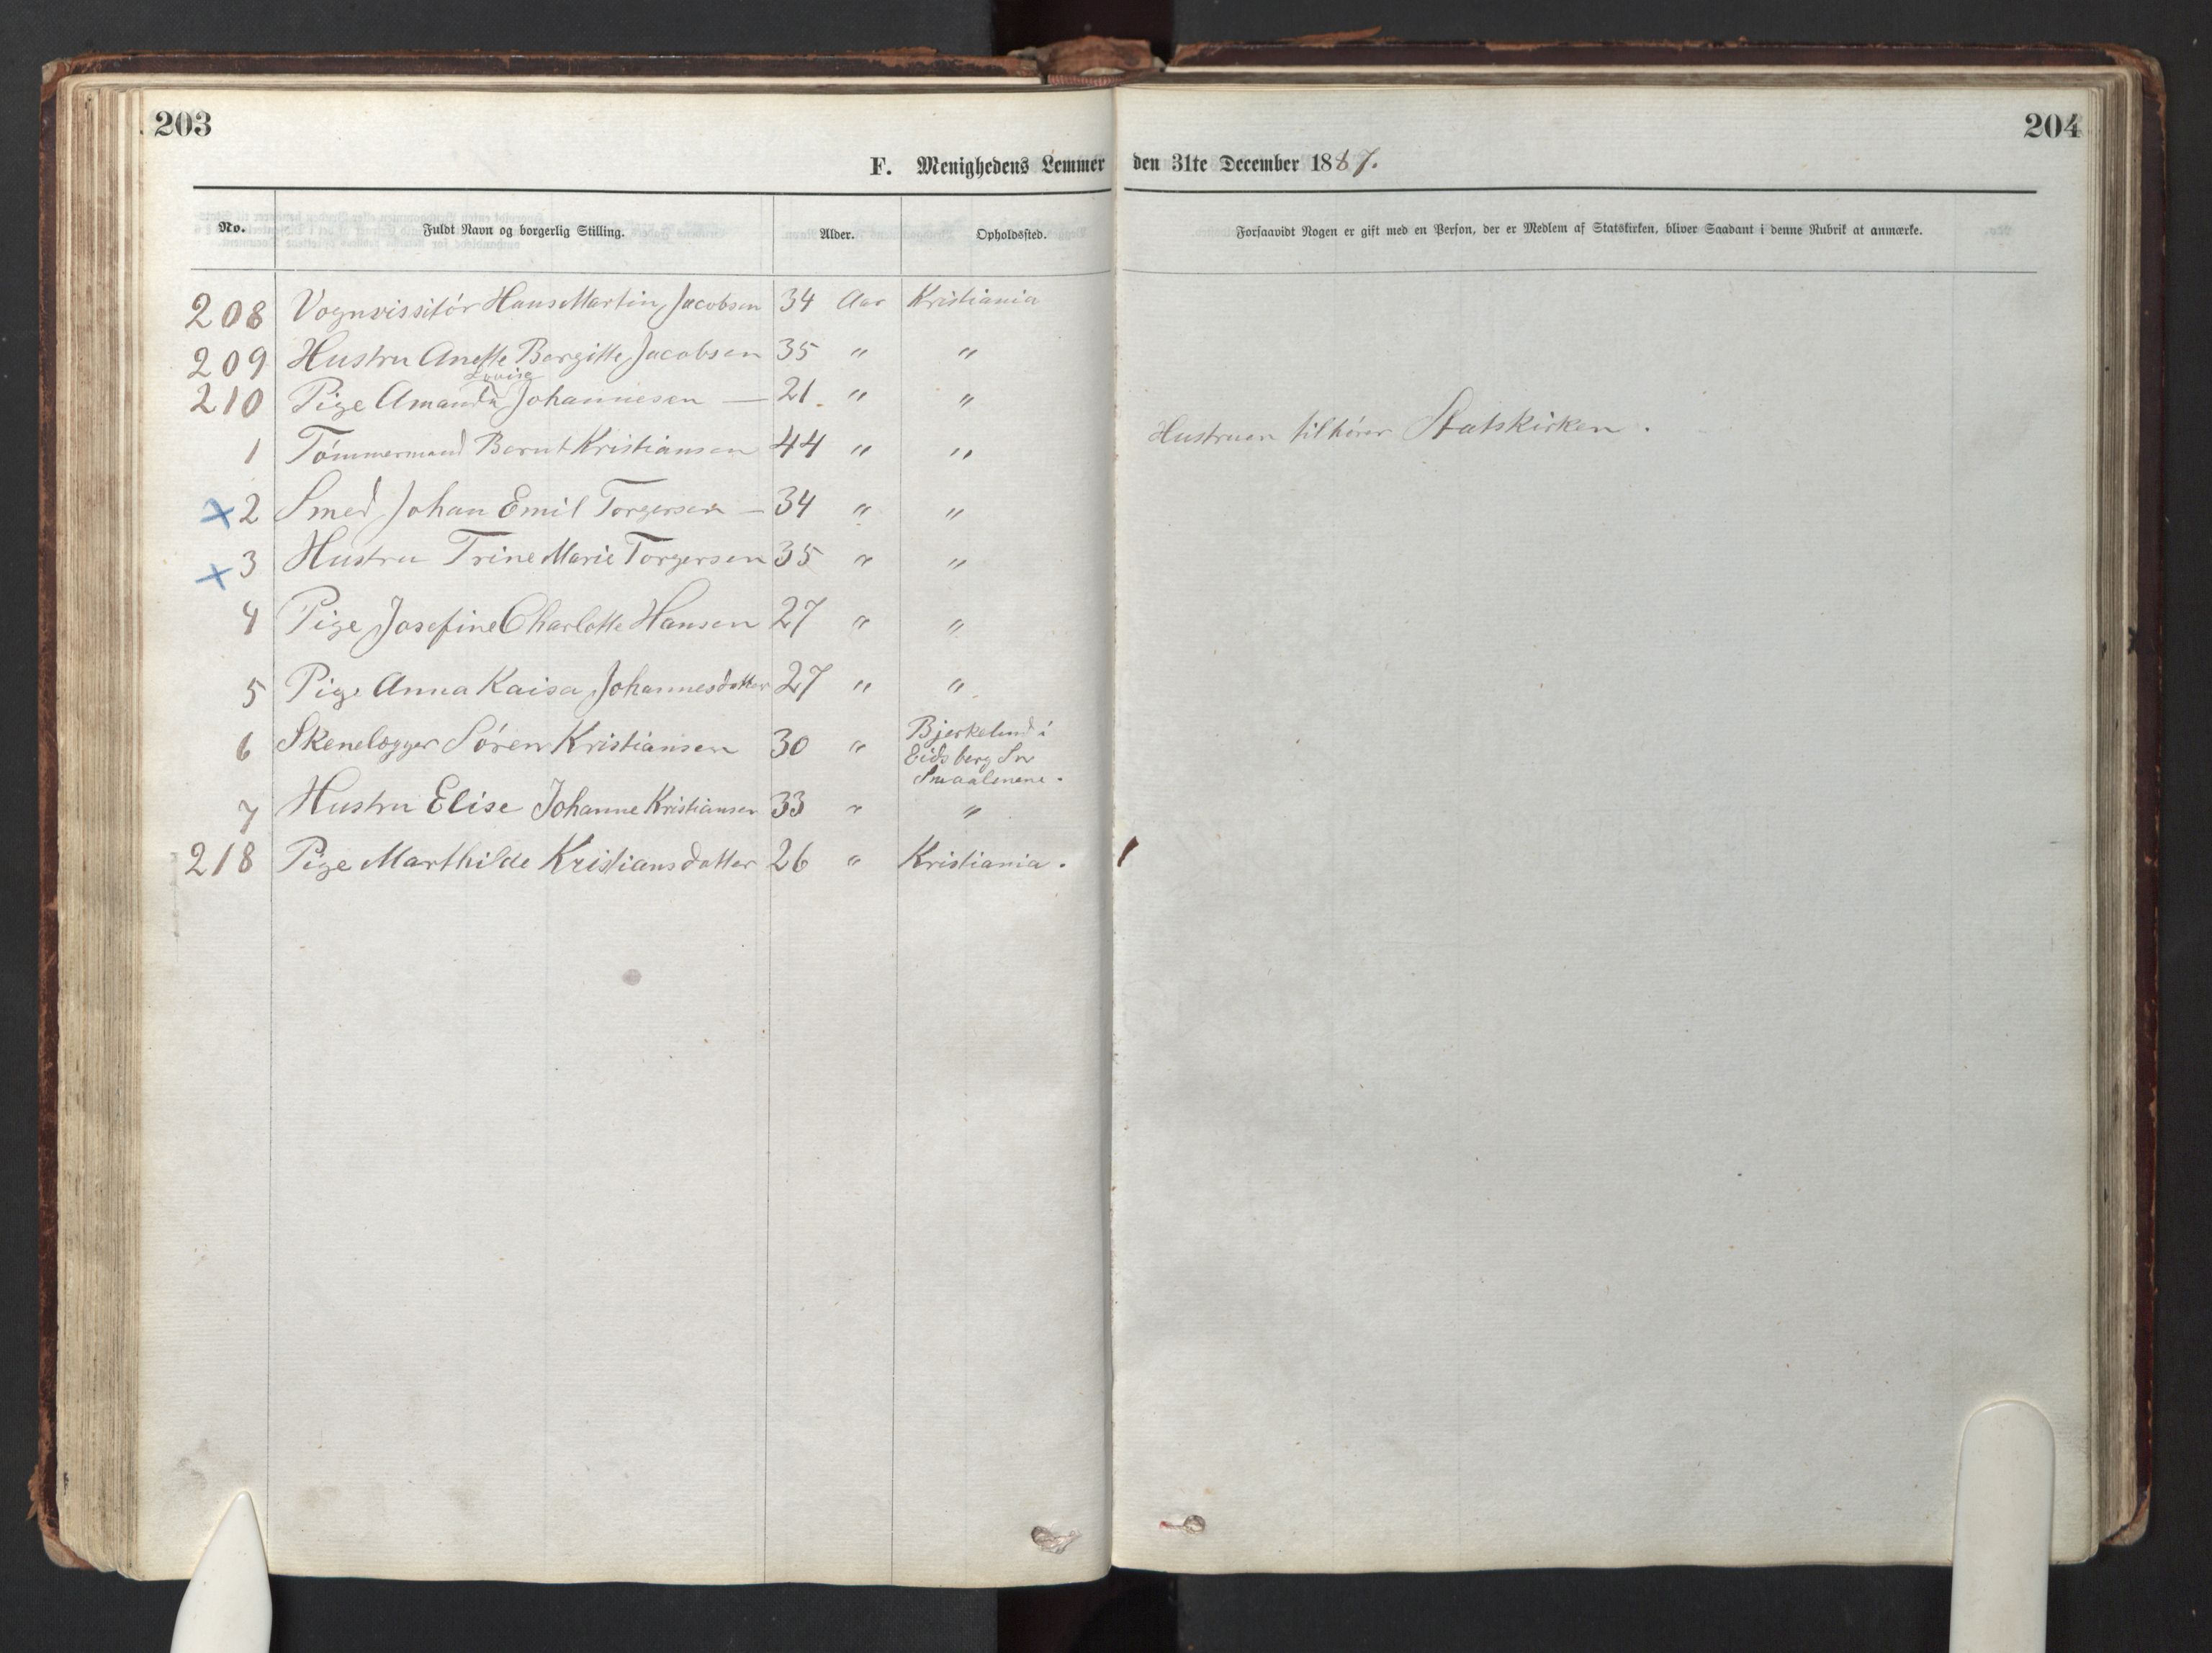 203
204
F. Menighedens Lemmer den 31te December 1887.
No. Fuldt Navn og borgerlig Stilling. Alder. Opholdssted. Forsaavidt Nogen er gift med en Person, der er Medlem af Statskirken, bliver Saadant i denne Rubrik at anmærke.
208 Vognvissitór Hans Martin Jacobsen 34 Aar Kristiania
209 Hustru Anette Bergitte Jacobsen 35 " "
Lovise
210 Pige Amanda Johannesen — 21. " "
1 Tómmermand Bernt Kristiansen 44 " " Hustruen tilhórer Statskirken.
x 2 Smed Johan Emil Torgersen — 34 " "
x 3 Hustru Trine Marie Torgersen 35 " "
4 Pige Josefine Charlotte Hansen 27 " "
5 Pige Anna Kaisa Johannesdatter 27 " "
6 Skenelægger Sóren Kristiansen 30 " Bjerkelund i
Eidsberg Sn
Smaalenene.
7 Hustru Elise Johanne Kristiansen 33 " "
218 Pige Marthilde Kristiansdatter 26 " Kristiania.